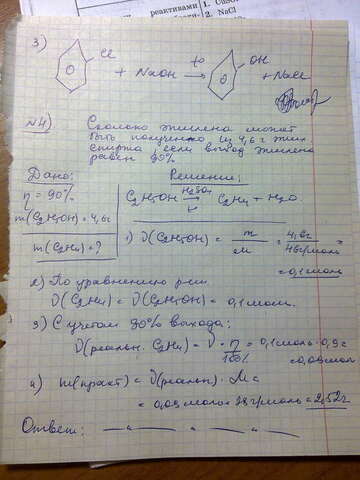 реактивами 1. CuSO
2. NaCl
3)
Cl OH
+ NaOH → t° + NaCl
№4) Сколько этилена может
быть получено из 4,6 г этил
спирта, если выход этилена
равен 90%
Дано: Решение:
η = 90% C₂H₅OH H₂SO₄ → t C₂H₄ + H₂O.
m(C₂H₅OH) = 4,6г
m(C₂H₄) = ? 1) ν(C₂H₅OH) = m/M = 4,6г/46г/моль =
= 0,1моль
2) По уравнению р-ии
ν(C₂H₄) = ν(C₂H₅OH) = 0,1моль.
3) С учётом 90% выхода:
ν(реальн. C₂H₄) = ν · η/100% = 0,1моль · 0,9 =
= 0,09моль
4) m(практ) = ν(реальн) · M =
= 0,09моль · 28г/моль = 2,52г
Ответ: — " — " — " —